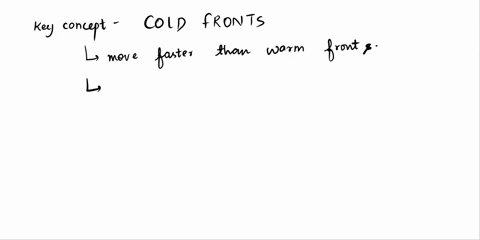 Key concept - COLD fRONTS
↳ move faster than warm fronts.
↳